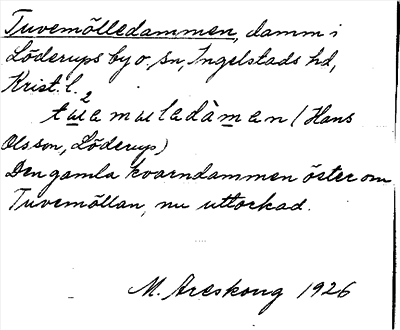 Tuvemölledammen, damm i
Löderups by o. sn, Ingelstads hd,
Krist. l.
tɯ²ɐmɯladàmɐn (Hans
Olsson, Löderup)
Den gamla kvarndammen öster om
Tuvemöllan, nu uttorkad.
M. Areskoug 1926